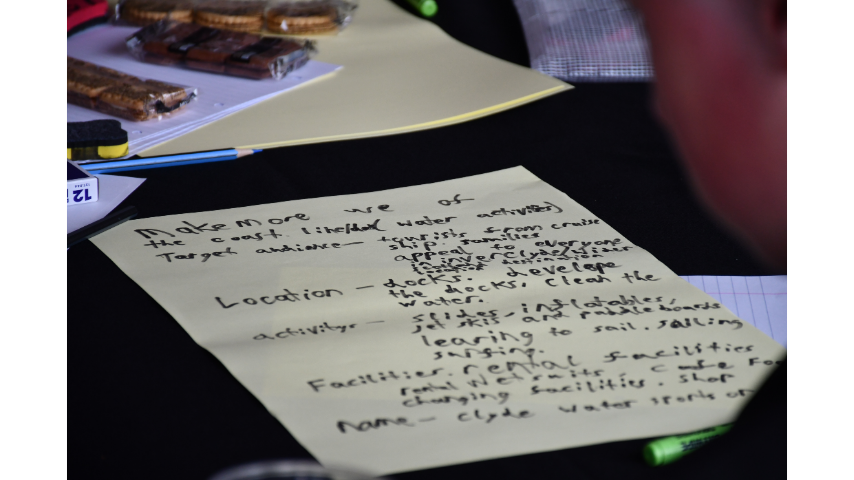 Make more we of
the coast line/ water activities)
Target audiance - tourists from cruise
ship. families
appeal to everyone
in inverclyde
tourist destination
Location - docks. develope
the docks, clean the
water.
activitys - slides, inflatables,
jet skis and paddleboards
learing to sail. sailing
surfing.
Facilities. rental facilities
rental wetsuits,
changing facilities. shop
Name - Clyde water sports
12